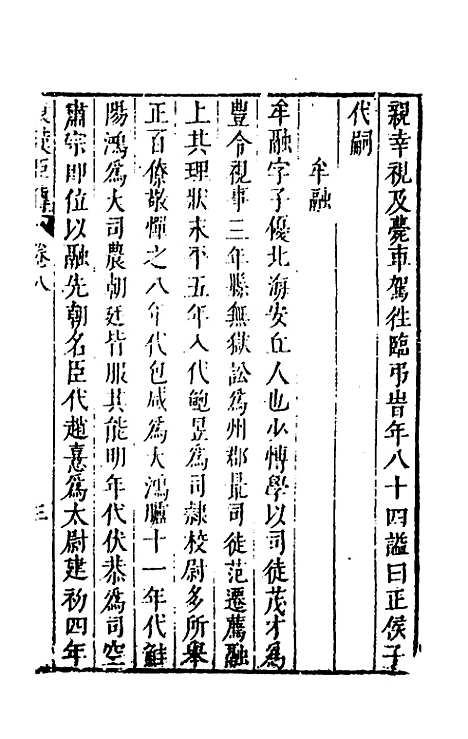 親幸視及薨車駕往臨弔昔年八十四謚曰正侯子
代嗣
牟融
牟融字子優北海安丘人也少博學以司徒茂才爲
豐令視事三年縣無獄訟爲州郡最司徒范遷薦融
上其理狀末平五年入代鮑昱爲司隸校尉多所舉
正百僚敬憚之八年代包咸爲大鴻臚十一年代鮭
陽鴻爲大司農朝廷皆服其能明年代伏恭爲司空
肅宗即位以融先朝名臣代趙憙爲太尉建初四年
卷八
三